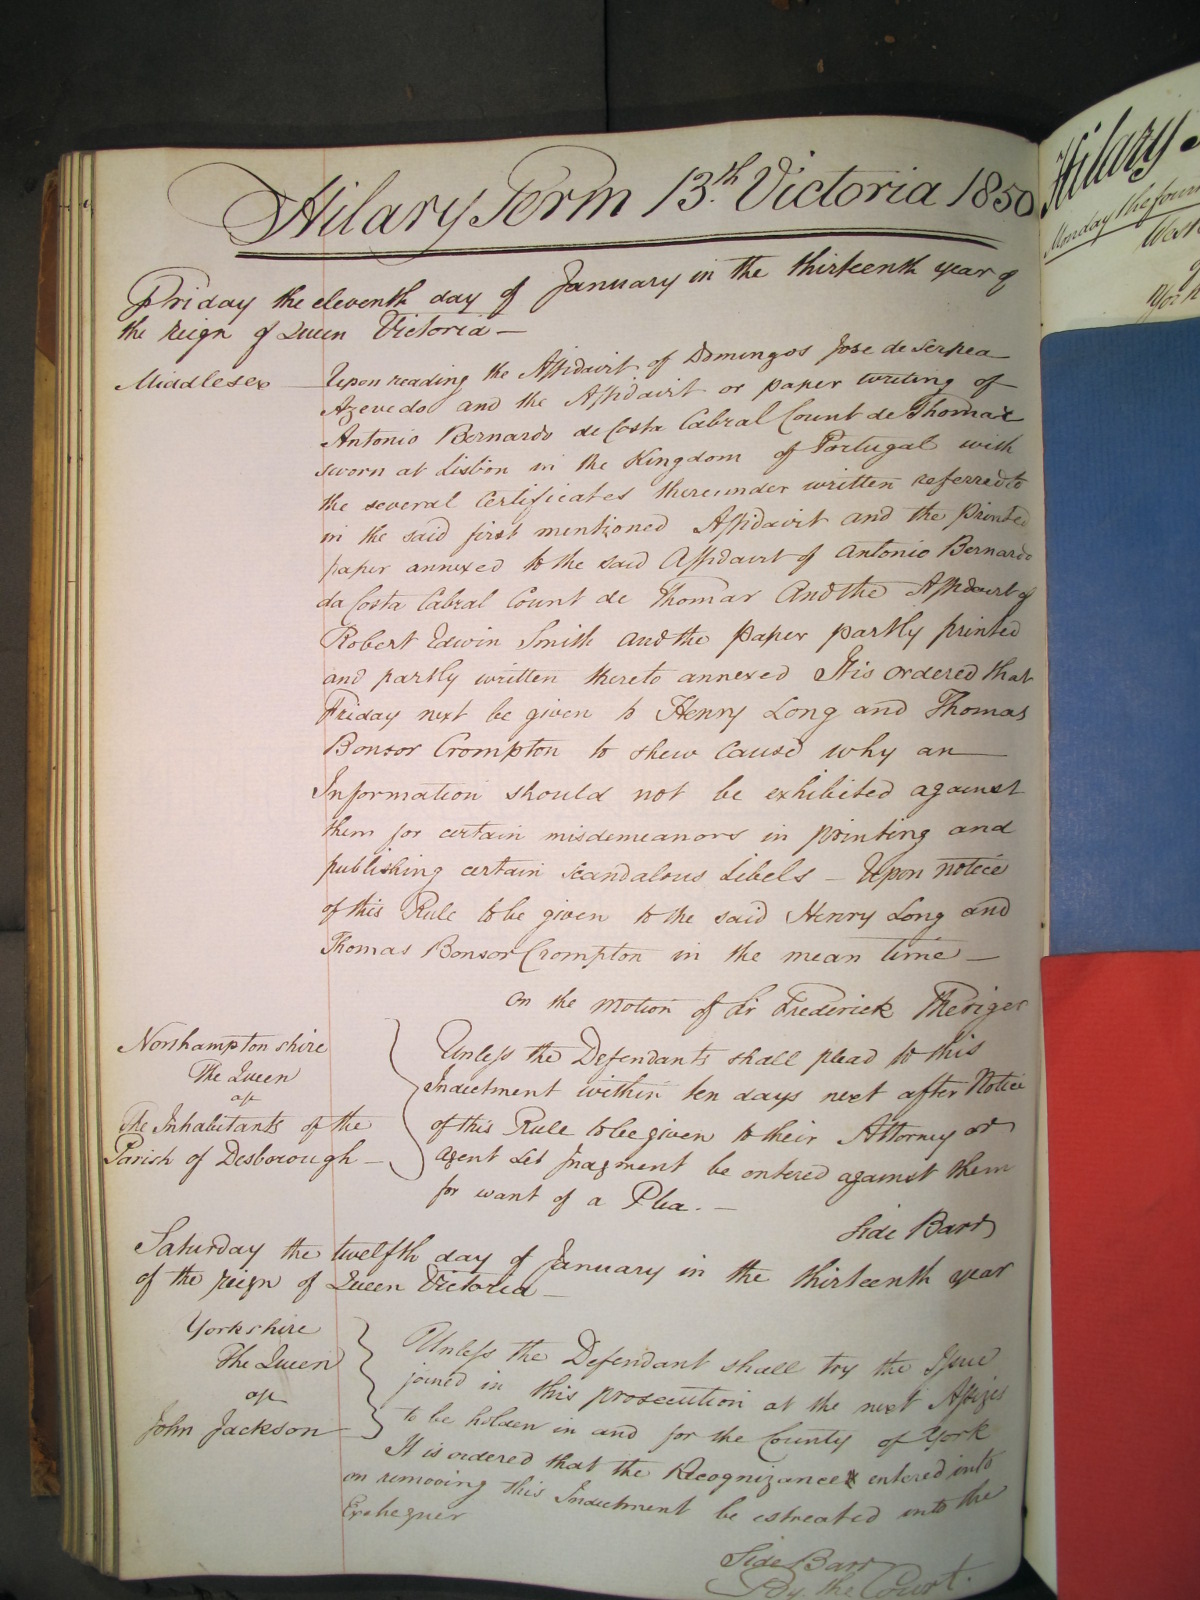 Hilary Term 13th Victoria 1850
Friday the eleventh day of January in the thirteenth year of
the reign of Queen Victoria —
Middlesex — Upon reading the Affidavit of Domingos Jose de Serpea
Azevedo and the Affidavit or paper writing of
Antonio Bernardo de Costa Cabral Count de Thomar
sworn at Lisbon in the Kingdom of Portugal with
the several Certificates thereunder written referred to
in the said first mentioned Affidavit and the printed
paper annexed to the said Affidavit of Antonio Bernardo
da Costa Cabral Count de Thomar And the Affidavit of
Robert Edwin Smith and the paper partly printed
and partly written thereto annexed It is ordered that
Friday next be given to Henry Long and Thomas
Bonsor Crompton to shew Cause why an
Information should not be exhibited against
them for certain misdemeanors in printing and
publishing certain scandalous Libels — Upon notice
of this Rule to be given to the said Henry Long and
Thomas Bonsor Crompton in the mean time —
On the motion of Sir Frederick Thesiger
Northampton shire
The Queen
agt
The Inhabitants of the
Parish of Desborough —
Unless the Defendants shall plead to this
Indictment within ten days next after Notice
of this Rule to be given to their Attorney or
Agent Let Judgment be entered against them
for want of a Plea. —
Side Barr
Saturday the twelfth day of January in the thirteenth year
of the reign of Queen Victoria —
Yorkshire
The Queen
agt
John Jackson
Unless the Defendant shall try the Issue
joined in this prosecution at the next Assizes
to be holden in and for the County of York
It is ordered that the Recognizance entered into
on removing this Indictment be estreated into the
Exchequer
Side Barr
By the Court.
Hilary
Monday the four
West